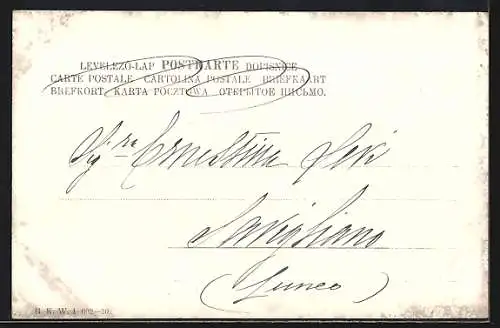 LEVELEZŐ-LAP POSTKARTE DOPISNICE
CARTE POSTALE CARTOLINA POSTALE BRIEFKAART
BREFKORT KARTA POCZTOWA ОТКРЫТОЕ ПИСЬМО.
Sig.ra Ernestina
Savigliano
(Cuneo)
B. K. W. I. 602-20.